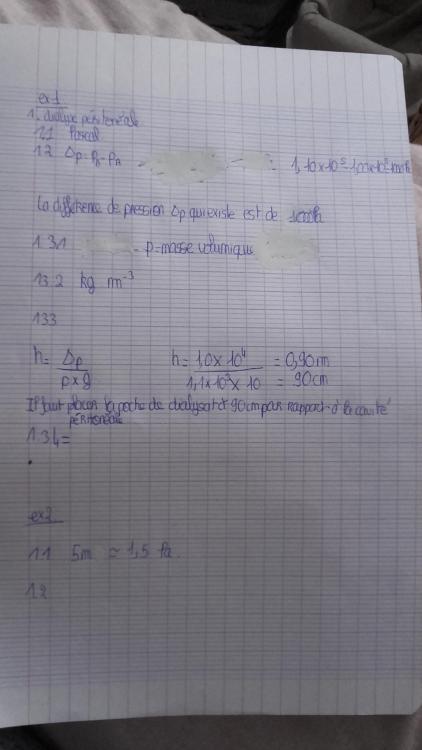 ex1
1. dialyse péritonéale
1.1 Pascal
1.2 Δp = PB - PA = 1,10 x 10⁵ - 1,00 x 10⁵
La différence de pression Δp qui existe est de
1.3.1 - ρ = masse volumique
1.3.2 kg m⁻³
1.3.3
h = Δp / ρ x g h = 1,0 x 10⁴ / 1,1 x 10³ x 10 = 0,90 m
= 90 cm
Il faut placer la poche de dialysat à 90 cm par rapport à la cavité
péritonéale
1.3.4 =
ex2
1.1 5m = 1,5 Pa
1.2